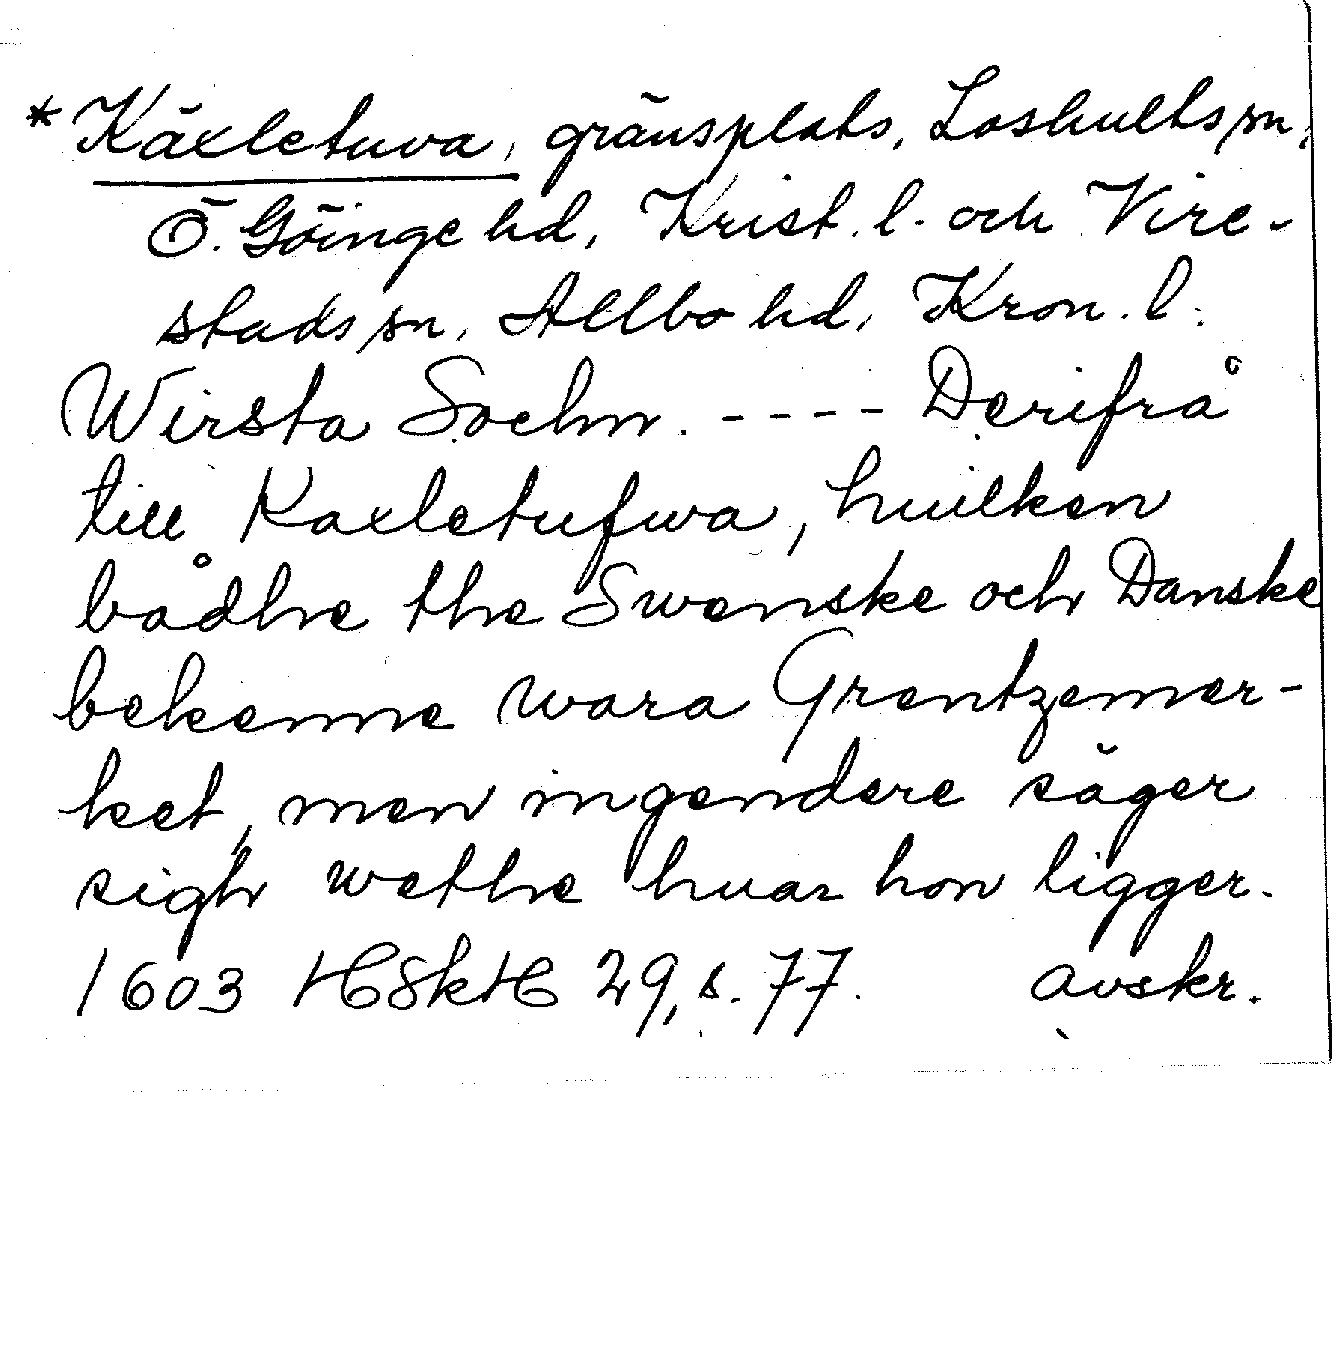 * Käxletuva, gränsplats, Loshults sn,
Ö. Göinge hd, Krist. l. och Vire-
stads sn, Allbo hd, Kron. l.
Wirsta Sochn. - - - - Derifrå
till Kaxletufwa, huilken
bådhe the Swenske och Danske
bekenne wara Grentzemer-
ket, men ingendere säger
sigh wethe huar hon ligger.
1603 HSkH 29, s. 77. avskr.